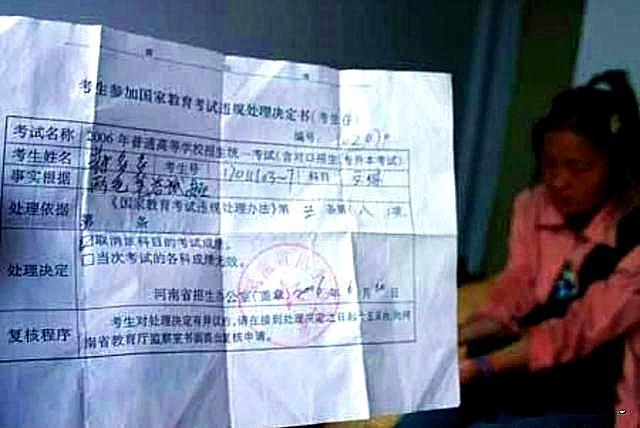 考生参加国家教育考试违规处理决定书(考生存)
编号:
考试名称 2006年普通高等学校招生统一考试(含对口招生、专升本考试)
考生姓名 考生号 科目
事实根据
处理依据 《国家教育考试违规处理办法》第 条第(八)项、
第 条
处理决定 ☑取消该科目的考试成绩。
□当次考试的各科成绩无效。
河南省招生办公室(盖章)2006年6月 日
复核程序 考生对处理决定有异议的,请在接到处理决定之日起十五日内,向河
南省教育厅监察室书面提出复核申请。